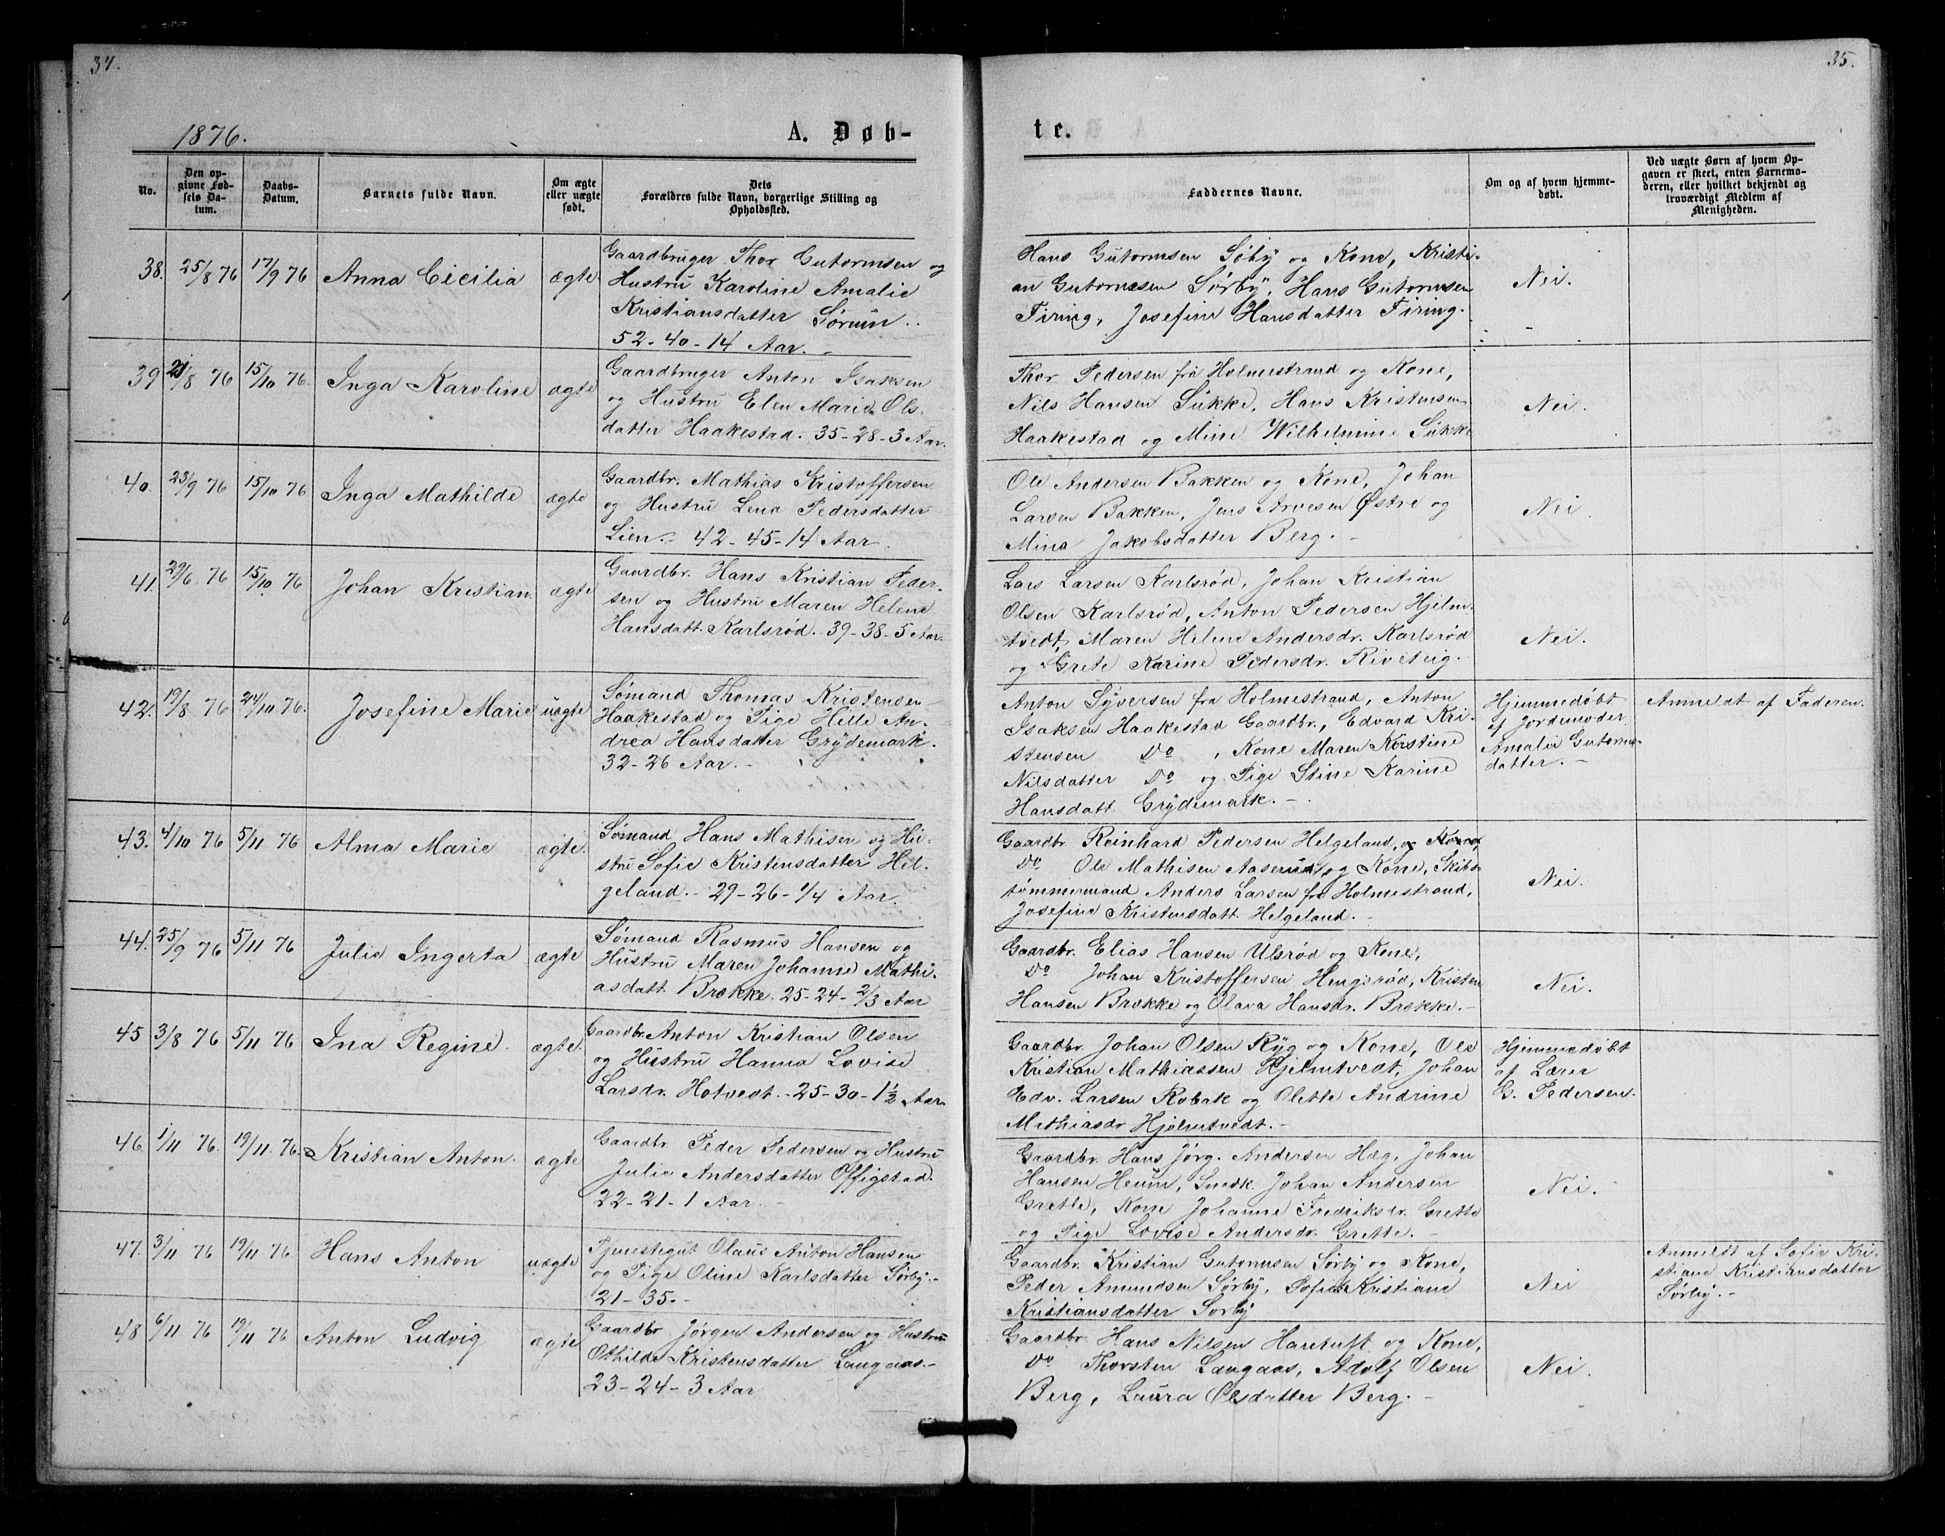 34.
1876.
A. Døb-
No.
Den op-
givne Fød-
sels Da-
tum.
Daabs-
Datum.
Barnets fulde Navn.
Om ægte
eller uægte
født.
Dets
Forældres fulde Navn, borgerlige Stilling og
Opholdssted.
38. 25/8 76 17/9 76 Anna Cicilia ægte
Gaardbruger Thor Gutormsen og
Hustru Karoline Amalie
Kristiansdatter Sørum.
52-40-14 Aar.
39 21/8 76 15/10 76. Inga Karoline ægte
Gaardbruger Anton Isaksen
og Hustru Elen Marie Ols-
datter Haakestad. 35-28-3 Aar.
40. 23/9 76 15/10 76 Inga Mathilde ægte
Gaardbr. Mathias Kristoffersen
og Hustru Lena Pedersdatter
Lien. 42-45-14 Aar.
41. 29/6 76 15/10 76 Johan Kristian ægte
Gaardbr. Hans Kristian Peder-
sen og Hustru Maren Helene
Hansdatt. Karlsrød. 39-38-5 Aar.
42. 19/8 76 24/10 76. Josefine Marie uægte
Sømand Thomas Kristensen
Haakestad og Pige Helle An-
drea Hansdatter Grydemark.
32-26 Aar.
43. 4/10 76 5/11 76 Alma Marie ægte.
Sømand Hans Mathisen og Hu-
stru Sofie Kristensdatter Hel-
geland. 29-26-1/4 Aar.
44. 25/9 76 5/11 76 Julie Ingerta ægte
Sømand Rasmus Hansen og
Hustru Maren Johanne Mathi-
asdatt. Brekke. 25-24-2/3 Aar
45 3/8 76 5/11 76 Ina Regine. ægte.
Gaardbr. Anton Kristian Olsen
og Hustru Hanna Lovise
Larsdr. Hotvedt. 25-30-1½ Aar.
46. 1/11 76. 19/11 76. Kristian Anton. ægte
Gaardbr. Peder Pedersen og Hustru
Julie Andersdatter Offigstad.
22-21-1 Aar.
47. 3/11 76 19/11 76 Hans Anton uægte
Tjenestegut Olaus Anton Hansen
og Pige Oline Karlsdatter Sørby.
21-35.
48 6/11 76 19/11 76 Anton Ludvig ægte
Gaardbr Jørgen Andersen og Hustru
Othilde Kristensdatter Langaas.
23-24-3 Aar
35.
te.
Faddernes Navne.
Om og af hvem hjemme-
døbt.
Ved uægte Børn af hvem Op-
gaven er skeet, enten Barnemo-
deren, eller hvilket bekjendt og
troværdigt Medlem af
Menigheden.
Hans Gutormsen Søby og Kone, Kristi-
an Gutormsen Sørby, Hans Gutormsen
Firing, Josefine Hansdatter Firing.
Nei.
Thor Pedersen fra Holmestrand og Kone,
Nils Hansen Sukke, Hans Kristensen
Haakestad og Mine Wilhelmine Sukke
Nei.
Ole Andersen Bakken og Kone, Johan
Larsen Bakken, Jens Arvesen Østre og
Mina Jakobsdatter Berg.
Nei
Lars Larsen Karlsrød, Johan Kristian
Olsen Karlsrød, Anton Pedersen Hjelm-
tvedt, Maren Helene Andersdr. Karlsrød
og Grete Karine Pedersdr. Riveteig.
Nei.
Anton Syversen fra Holmestrand, Anton
Isaksen Haakestad Gaardbr., Edvard Kri-
stensen Do, Kone Maren Kirstine
Nilsdatter Do og Pige Stine Karine
Hansdatt. Grydemark.
Hjemmedøbt
af Jordemoder
Amalie Gutorms-
datter.
Anmeldt af Faderen.
Gaardbr. Reinhard Pedersen Helgeland, og Kone,
Do Ole Mathisen Aaserud, og Kone, Skibs-
tømmermand Anders Larsen fra Holmestrand,
Josefine Kristensdatt. Helgeland.
Nei.
Gaardbr. Elias Hansen Ulsrød og Kone,
Do Johan Kristoffersen Hengsrød, Kristen
Hansen Brekke og Olava Hansdr. Brekke.
Nei.
Gaardbr. Johan Olsen Ryg og Kone, Ole
Kristian Mathiassen Hjelmtvedt, Johan
Edv. Larsen Robak og Olette Andrine
Mathiasdr Hjelmtvedt.
Hjemmedøbt
af Lærer
G. Pedersen.
Gaardbr. Hans Jørg. Andersen Hæg, Johan
Hansen Heum, Snedk. Johan Andersen
Grette, Kone Johanne Fredriksdr. Grette
og Pige Lovise Andersdr. Grette.
Nei.
Gaardbr. Kristian Gutormsen Sørby og Kone,
Peder Amundsen Sørby, Sofie Kristiane
Kristiansdatter Sørby
Nei
Anmeldt af Sofie Kri-
stiane Kristiansdatter
Sørby.
Gaardbr. Hans Nilsen Haretuft og Kone,
Do Thorsten Langaas, Adolf Olsen
Berg, Laura Olsdatter Berg.
Nei.